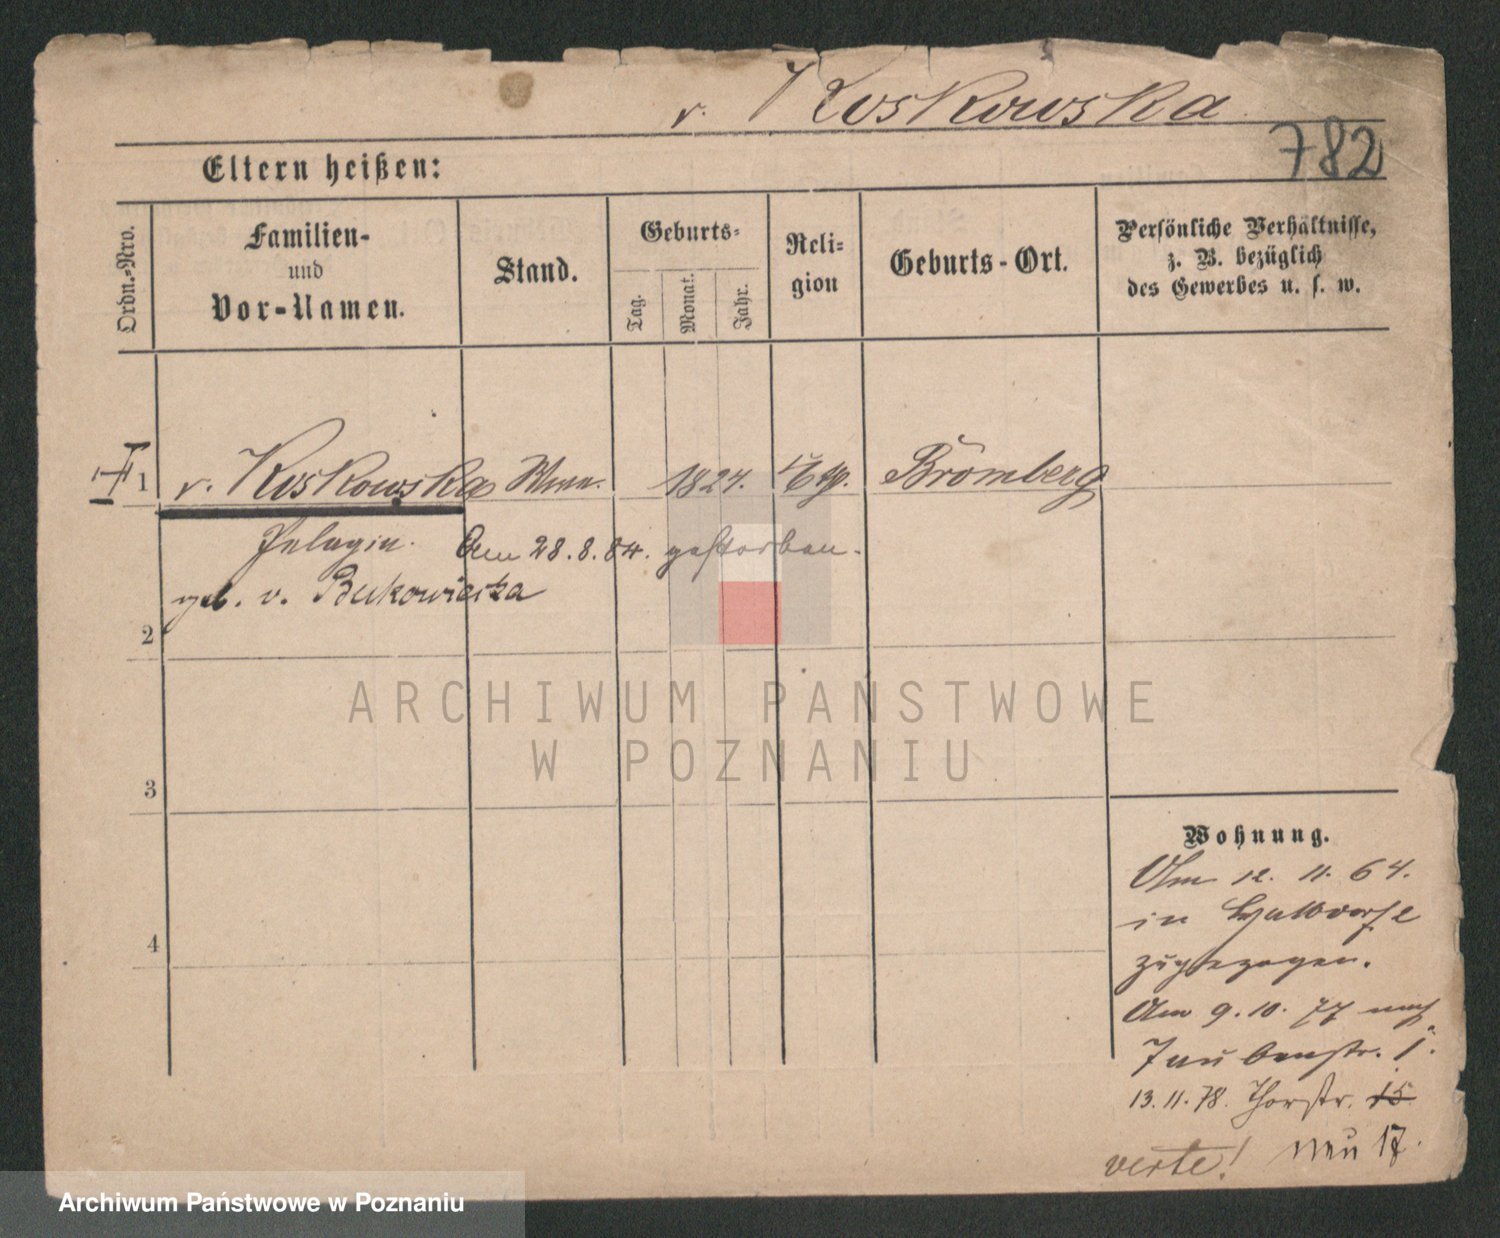 v. Koskowska
782
Eltern heißen:
Ordn.-Nro.
Familien-
und
Vor-Namen.
Stand.
Geburts-
Tag.
Monat.
Jahr.
Reli-
gion
Geburts-Ort.
Persönliche Verhältnisse,
z. B. bezüglich
des Gewerbes u. s. w.
1 v. Koskowska Wwe. 1824. kth. Bromberg
Pelagia. Am 28.8.84. gestorben.
geb. v. Bukowiecka
2
3
4
Wohnung.
Am 12. 11. 64.
in
zugezogen.
Am 9.10. 77 nach
Taubenstr. 1.
13.11.78. Thorstr. 15
neu 17.
verte!
ARCHIWUM PAŃSTWOWE
W POZNANIU
Archiwum Państwowe w Poznaniu